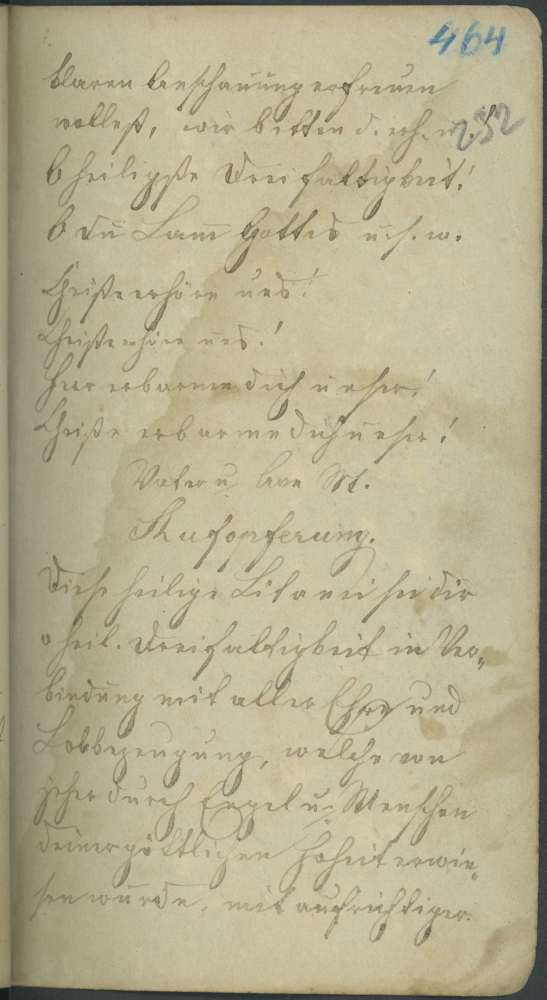 464
klaren Anschauung erfreuen
232
wollest, wir bitten d. erh. u.
O heiligste Dreifaltigkeit!
O du Lam Gottes u. s. w.
Christe erhöre uns!
Christe höre uns!
Herr erbarme dich unser!
Christe erbarme dich unser!
Vater u. Ave M.
Aufopferung.
Diese heilige Litanei sei dir
o heil. Dreifaltigkeit in Ver„
bindung mit aller Ehre und
Lobbezeugung, welche von
jeher durch Engel u. Menschen
deiner göttlichen Hoheit erwie„
sen wurde, mit aufrichtiger